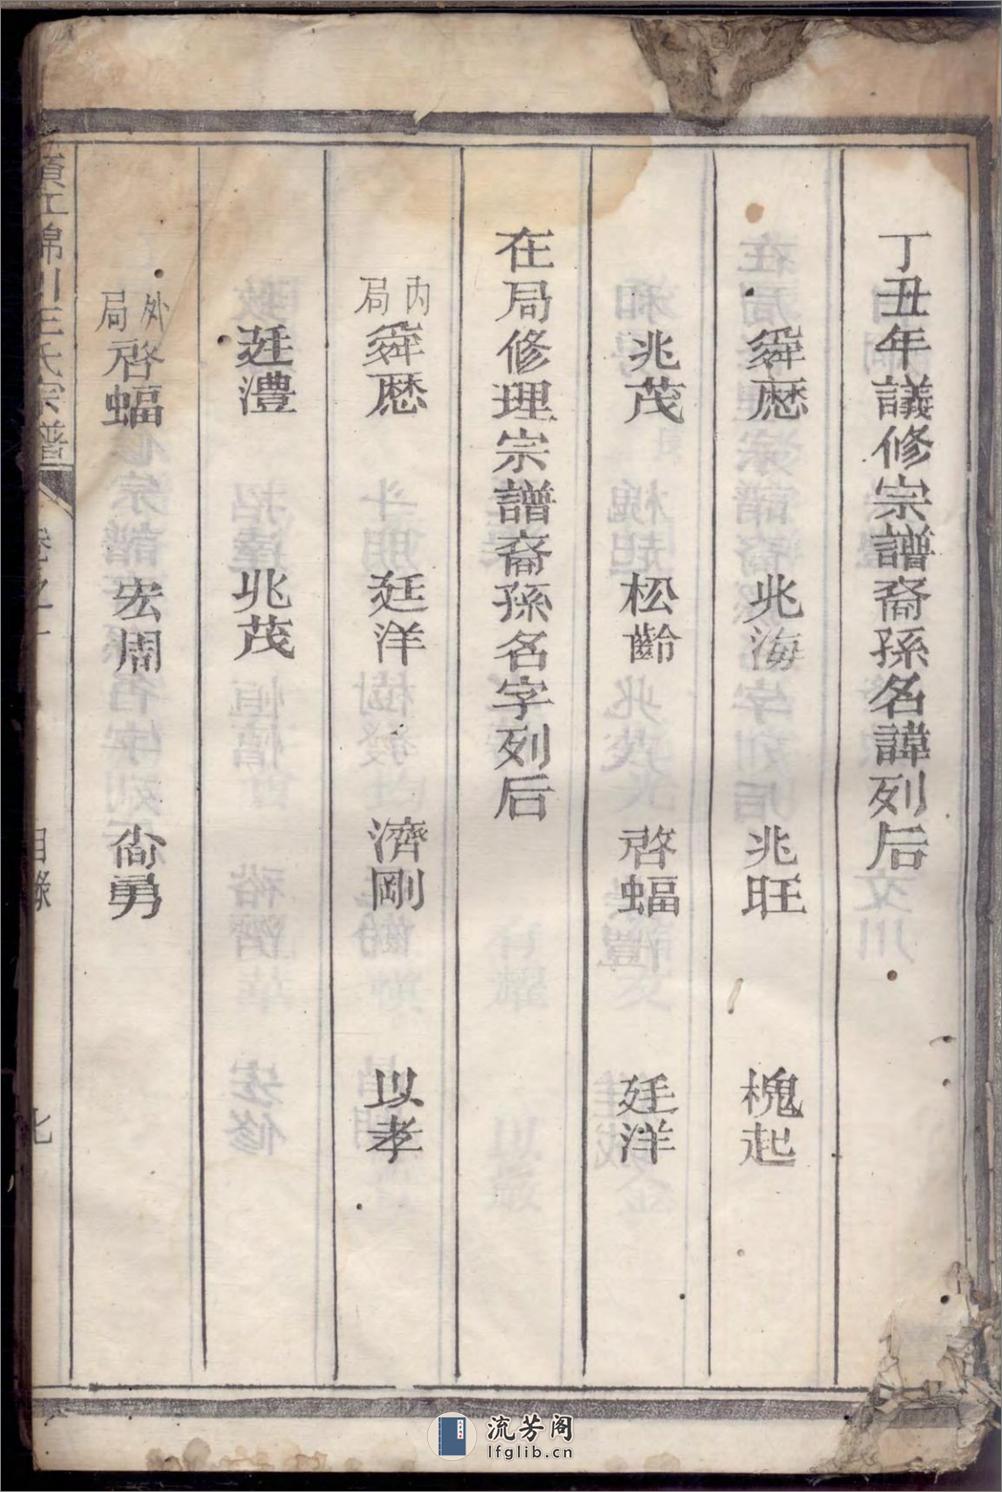 丁丑年議修宗譜裔孫名諱列后
舜歷 兆海 兆旺 槐起
兆茂 松齡 啓蝠 廷洋
在局修理宗譜裔孫名字列后
內局 舜歷 廷洋 濟剛 以孝
廷灃 兆茂
外局 啓蝠 宏周 尙勇
江錦川王氏宗譜 卷之一 目錄
流芳阁
lfglib.cn